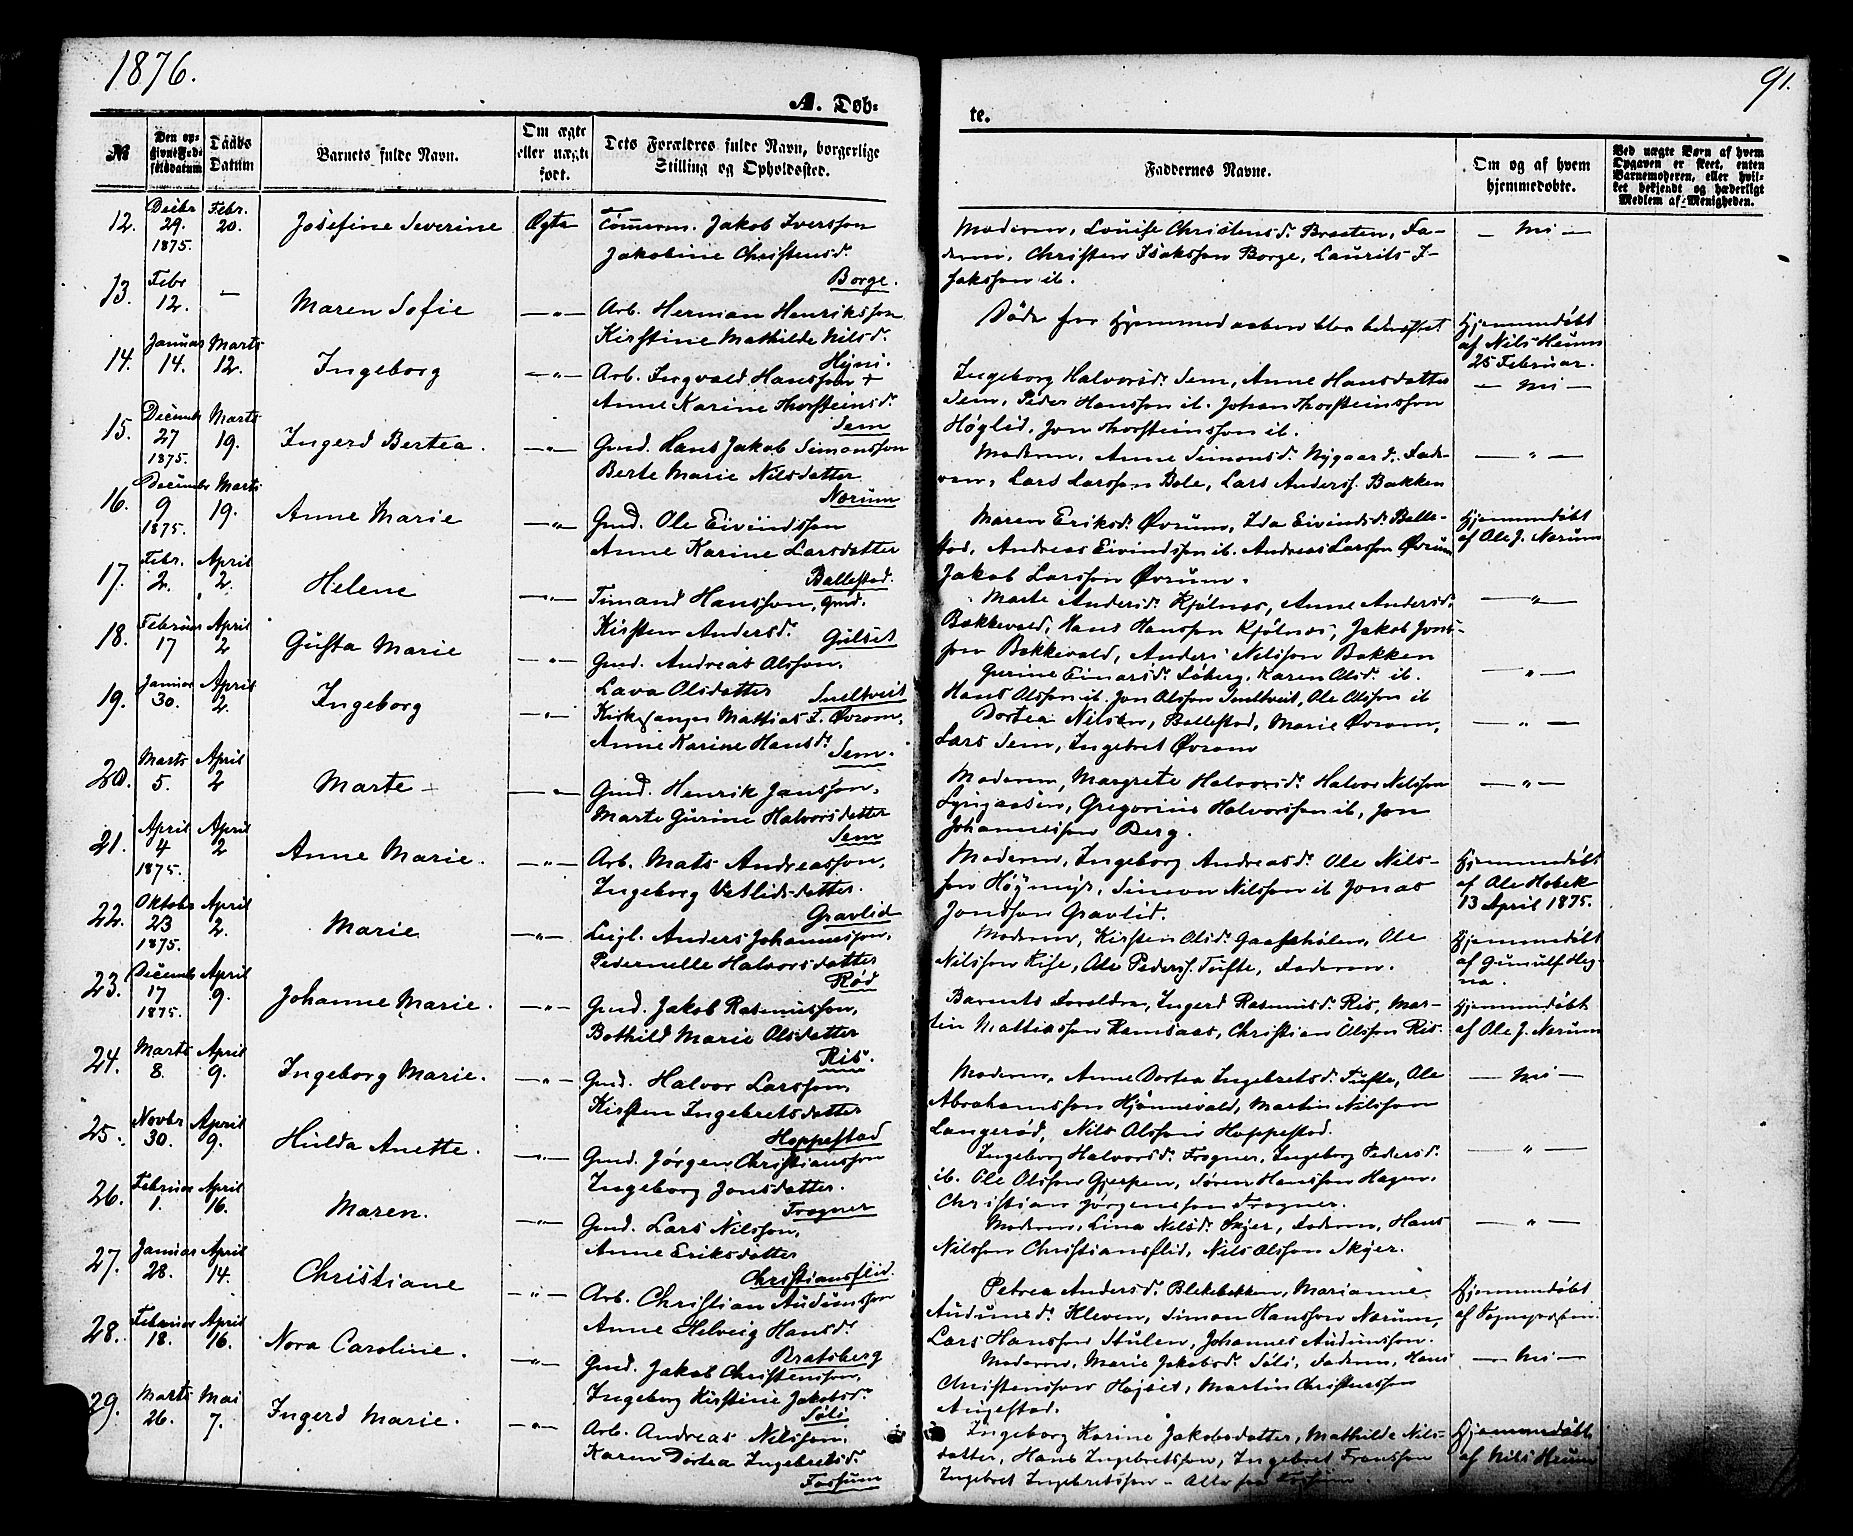 1876.
91.
A. Døb=
te.
№
Den opgivne Fødselsdatum
Daabs Datum
Barnets fulde Navn.
Om ægte eller uægte født.
Dets Forældres fulde Navn, borgerlige Stilling og Opholdssted.
Faddernes Navne.
Om og af hvem hjemmedøbte.
Ved uægte Børn af hvem Opgaven er skeet, enten Barnemoderen, eller hvilket bekjendt og hæderligt Medlem af Menigheden.
12. Decbr 29. 1875 Febr. 20. Josefine Severine Ægte Tømerm. Jakob Iversson
Jakobine Christensd.
Borge.
Moderen, Louise Christensd. Braaten, Fa-
deren, Christen Isaksson Borge, Laurits I-
saksson ib.
— Nei —
13. Febr 12. — Maren Sofie —"— Arb. Herman Henriksson
Kirstine Mathilde Nilsd.
Hejni.
Døde før Hjemmedaaben blev bekræftet
Hjemmedøbt
af Nils Heium
25 Februar.
14. Januar 14. Marts 12. Ingeborg —"— Arb. Ingvald Hansson +
Anne Karine Thorsteinsd.
Sem
Ingeborg Halvorsd. Sem, Anne Hansdatter
Sem, Peder Hansson ib. Johan Thorsteinsson
Høglid, Jon Thorsteinsson ib.
— Nei —
15. Decembr 27 1875. Marts 19. Ingerd Bertea. —"— Gmd. Hans Jakob Simonsson
Berte Marie Nilsdatter
Nærum
Moderen, Anne Simonsd. Nygaard, Fade-
ren, Lars Larsson Bole, Lars Anderss. Bakken
— " —
16. Decembr 9 1875. Marts 19. Anne Marie —"— Gmd. Ole Eivindsson
Anne Karine Larsdatter
Ballestad.
Maren Eriksd. Øvrum, Ida Eivindsd. Balle-
stad, Andreas Eivindsson ib. Andreas Larsson Øvrum
Jakob Larsson Øvrum.
Hjemmedøbt
af Ole J. Nærum
17. Febr. 2. April 2. Helene —"— Timand Hansson, Gmd.
Kirsten Andersd.
Gulset
Marte Andersd. Kjølnes, Anne Andersd.
Bakkevald, Hans Hansson Kjølnes, Jakob Jons-
son Bakkevald, Anders Nilsson Bakken
— " —
18. Februar 17 April 2 Gusta Marie —"— Gmd. Andreas Olsson,
Lava Olsdatter
Sneltveit
Gurine Einarsd. Løberg, Karen Olsd. ib.
Hans Olsson ib. Jon Olsson Sneltveit, Ole Olsson ib
— " —
19. Januar 30. April 2. Ingeborg —"— Kirkesanger Mattias I. Øvrom,
Anne Karine Hansd.
Sem.
Dortea Nilsen, Ballestad, Marie Øvrom,
Lars Sem, Ingebret Øvrom
— " —
20. Marts 5. April 2 Marte —"— Gmd. Henrik Jansson,
Marte Gurine Halvorsdatter
Sem
Moderen, Margrete Halvorsd. Halvor Nilsson
Lyngaasen, Gregorius Halvorsson ib, Jon
Johannesson Berg.
— " —
21. April 4 1875. April 2 Anne Marie. —"— Arb. Mats Andreasson,
Ingeborg Vetlidsdatter.
Gravlid
Moderen, Ingeborg Andreasd. Ole Nils-
son Høgmyr, Simeon Nilsson ib Jonas
Jonsson Gravlid.
Hjemmedøbt
af Ole Hobek
13 April 1875.
22. Oktobr 23 1875 April 2. Marie —"— Leigl. Anders Johannesson,
Pedernelle Halvorsdatter
Rød
Moderen, Kirsten Olsd. Gaaseholen, Ole
Nilsson Rise, Ole Peders. Tufte, Faderen.
Hjemmedøbt
af Gunulf Hej-
na.
23. Decembr 17 1875 April 9. Johanne Marie. —"— Gmd. Jakob Rasmusson,
Bothild Marie Olsdatter
Ris.
Barnets Forældre, Ingerd Rasmusd. Ris, Mar-
tin Mattiasson Ramsaas, Christian Olsson Ris.
Hjemmedøbt
af Ole J. Nærum
24. Marts 8. April 9. Ingeborg Marie. —"— Gmd. Halvor Larsson,
Kirsten Ingebretsdatter
Hoppestad
Moderen, Anne Dortea Ingebretsd. Tufte, Ole
Abrahamsson Hjønnevald, Martin Nilsson
Langerød, Nils Olsson Hoppestad.
— Nei —
25. Novbr 30. April 9. Hulda Anette. —"— Gmd. Jørgen Christiansson
Ingeborg Jonsdatter.
Frogner
Ingeborg Halvorsd. Frogner, Ingeborg Pedersd.
ib. Ole Olsson Gjerpen, Søren Hansson Hagen,
Christian Jørgensson Frogner.
— " —
26. Februar 1. April 16. Maren. —"— Gmd. Lars Nilsson,
Anne Eriksdatter
Christianslid.
Moderen, Lina Nilsd. Skyer, Faderen, Hans
Nilsson Christianslid, Nils Olsson Skyer.
— " —
27. Januar 28. April 14. Christiane —"— Arb. Christian Audunsson
Anne Helvig Hansd.
Bratsberg
Petrea Andersd. Blekebakken, Marianne
Audunsd. Kleven, Simon Hansson Nærum,
Lars Hansson Stulen, Johannes Audunsson.
Hjemmedøbt
af Sognepresten.
28. Februar 18. April 16. Nora Caroline. —"— Gmd. Jakob Christensson,
Ingeborg Kirstine Jakobsd.
Søli
Moderen, Marie Jakobsd. Søli, Faderen, Hans
Christensson Højset, Martin Christensson
Augestad.
— Nei —
29. Marts 26. Mai 7. Ingerd Marie. —"— Arb. Andreas Nilsson,
Karen Dortea Ingebretsd.
Fossum
Ingeborg Karine Jakobsdatter, Mathilde Nils-
datter, Hans Ingebretsson, Ingebret Fransson
Ingebret Ingebretsson – Alle fra Fossum.
Hjemmedøbt
af Nils Heium